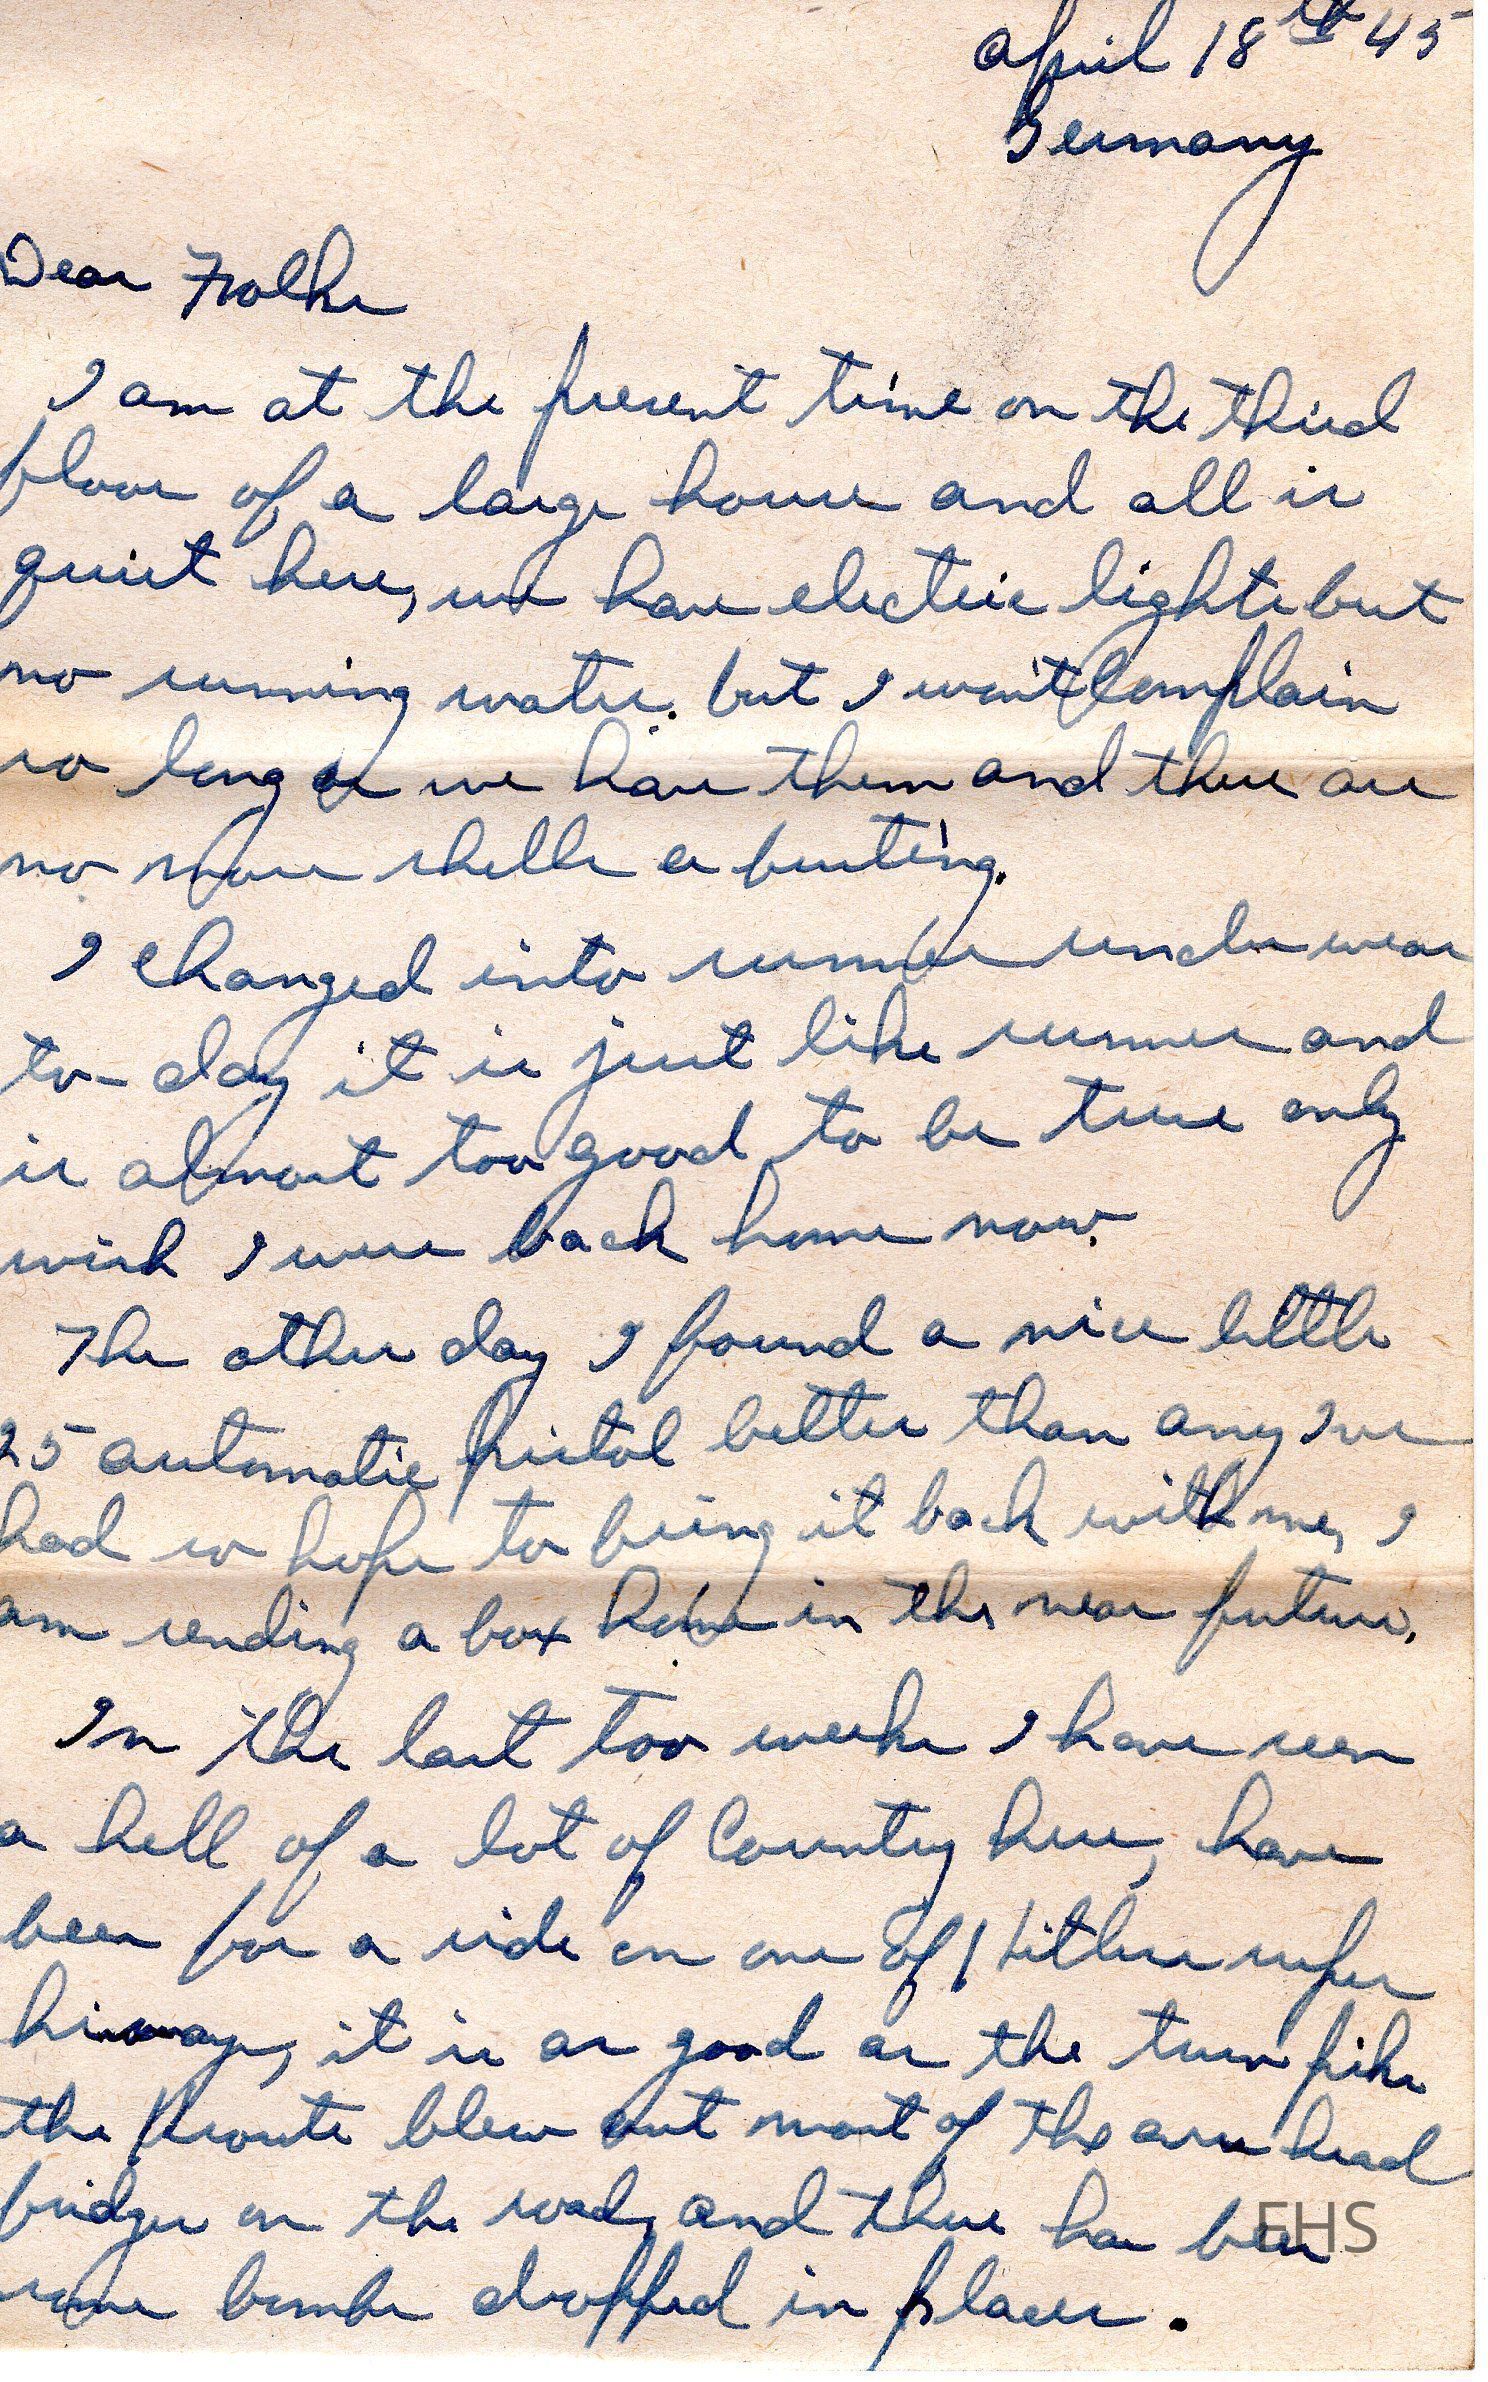 April 18th 45
Germany
Dear Frolks
I am at the present time on the third
floor of a large house and all is
quiet here, we have electric lights but
no running water. but I won't complain
so long as we have them and there are
no more shells a busting.
I changed into summer under wear
to-day it is just like summer and
is almost too good to be true only
wish I were back home now.
The other day I found a nice little
25 automatic pistol better than any Ive
had so hope to bring it back with me, I
am sending a box home in the near future.
In the last too weeks I have seen
a hell of a lot of Country here, have
been for a ride on one of Hitlers super
hiways, it is as good as the turn pike
the Krouts blew out most of the over head
bridges on the road, and there has been
some bombs dropped in places.
EHS